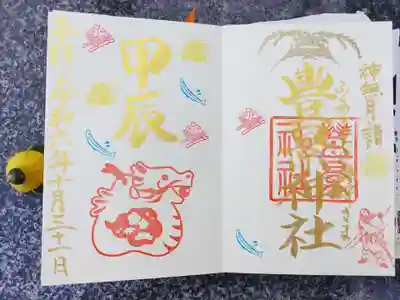 神無月詣
豊景神社
甲辰
奉拝 令和六年十月三十一日